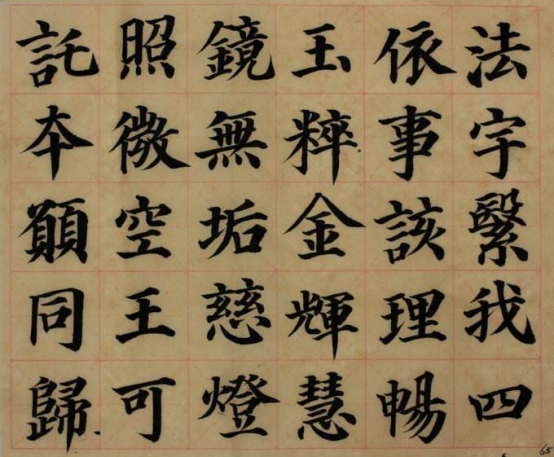 法宇繫我四
依事該理暢
玉粹金輝慧
鏡無垢慈燈
照微空王可
託本願同歸
65